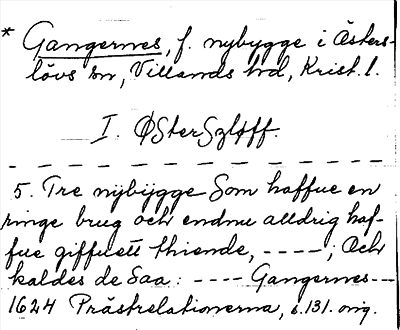 * Gangernes, f. nybygge i Östers-
lövs sn, Villands hd, Krist. l.
I. ØSterSzløff.
— — — — — — — — — — — — — —
5. Tre nÿbÿgge Som haffue en
ringe brug och endnu alldrig haf-
fue giffuett thiende, ----; Och
kaldes de Saa: ---- Gangernes---
1624 Prästrelationerna, s.131. orig.